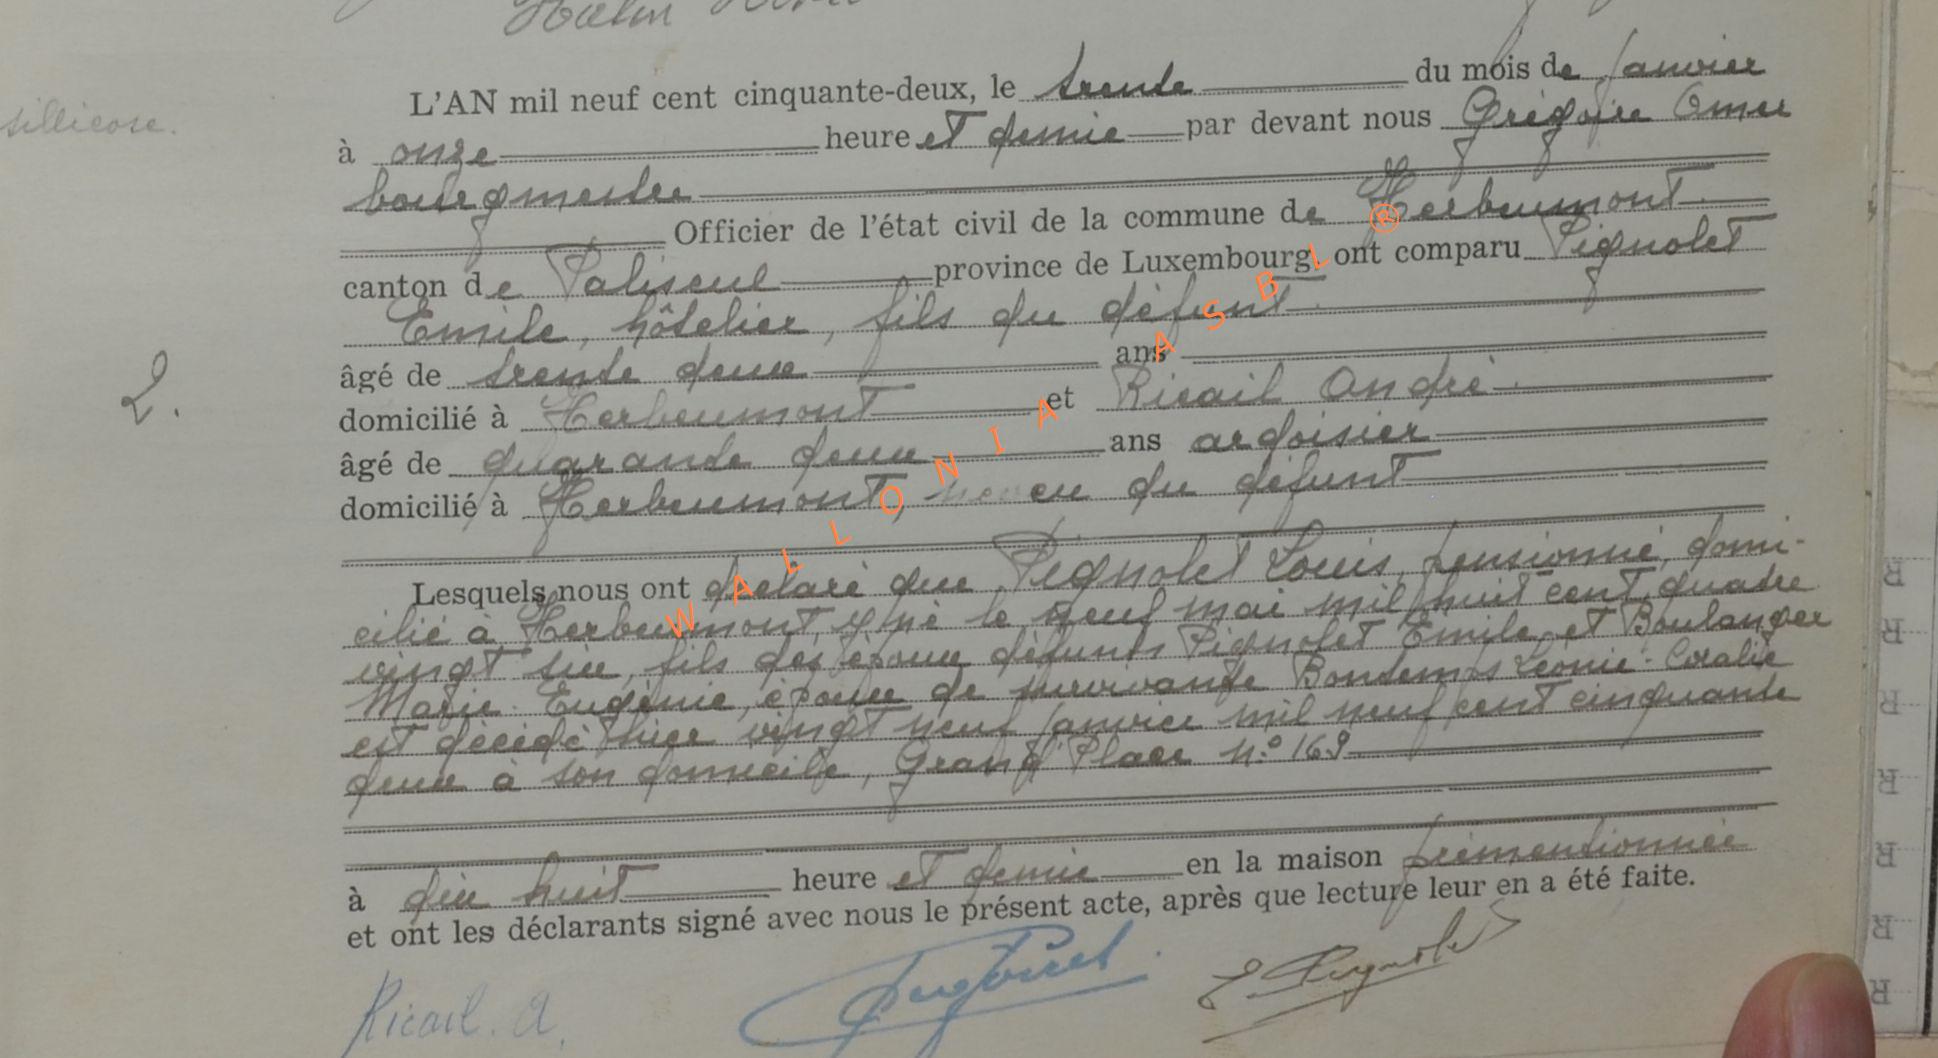 sillicose.
L'AN mil neuf cent cinquante-deux, le trente du mois de janvier
à onze heure et demie par devant nous Grégoire Omer
bourgmestre
Officier de l'état civil de la commune de Herbeumont
canton de Paliseul province de Luxembourg ont comparu Pignolet
Emile, hôtelier, fils du défunt
âgé de trente deux ans
2.
domicilié à Herbeumont et Ricail André
âgé de quarante deux ans ardoisier
domicilié à Herbeumont, neveu du défunt
Lesquels nous ont déclaré que Pignolet Louis, pensionné, domi-
cilié à Herbeumont, y né le neuf mai mil huit cent quatre
vingt six, fils des époux défunts Pignolet Emile et Boulanger
Marie-Eugénie, époux de survivante Bontemps Léonie-Coralie
est décédé hier vingt neuf janvier mil neuf cent cinquante
deux à son domicile, Grand'Place n:o 169
à dix huit heure et demie en la maison prémentionnée
et ont les déclarants signé avec nous le présent acte, après que lecture leur en a été faite.
Ricail. A. E. Pignolet
WALLONIA ASBL ®
R
R
R
R
R
R
R